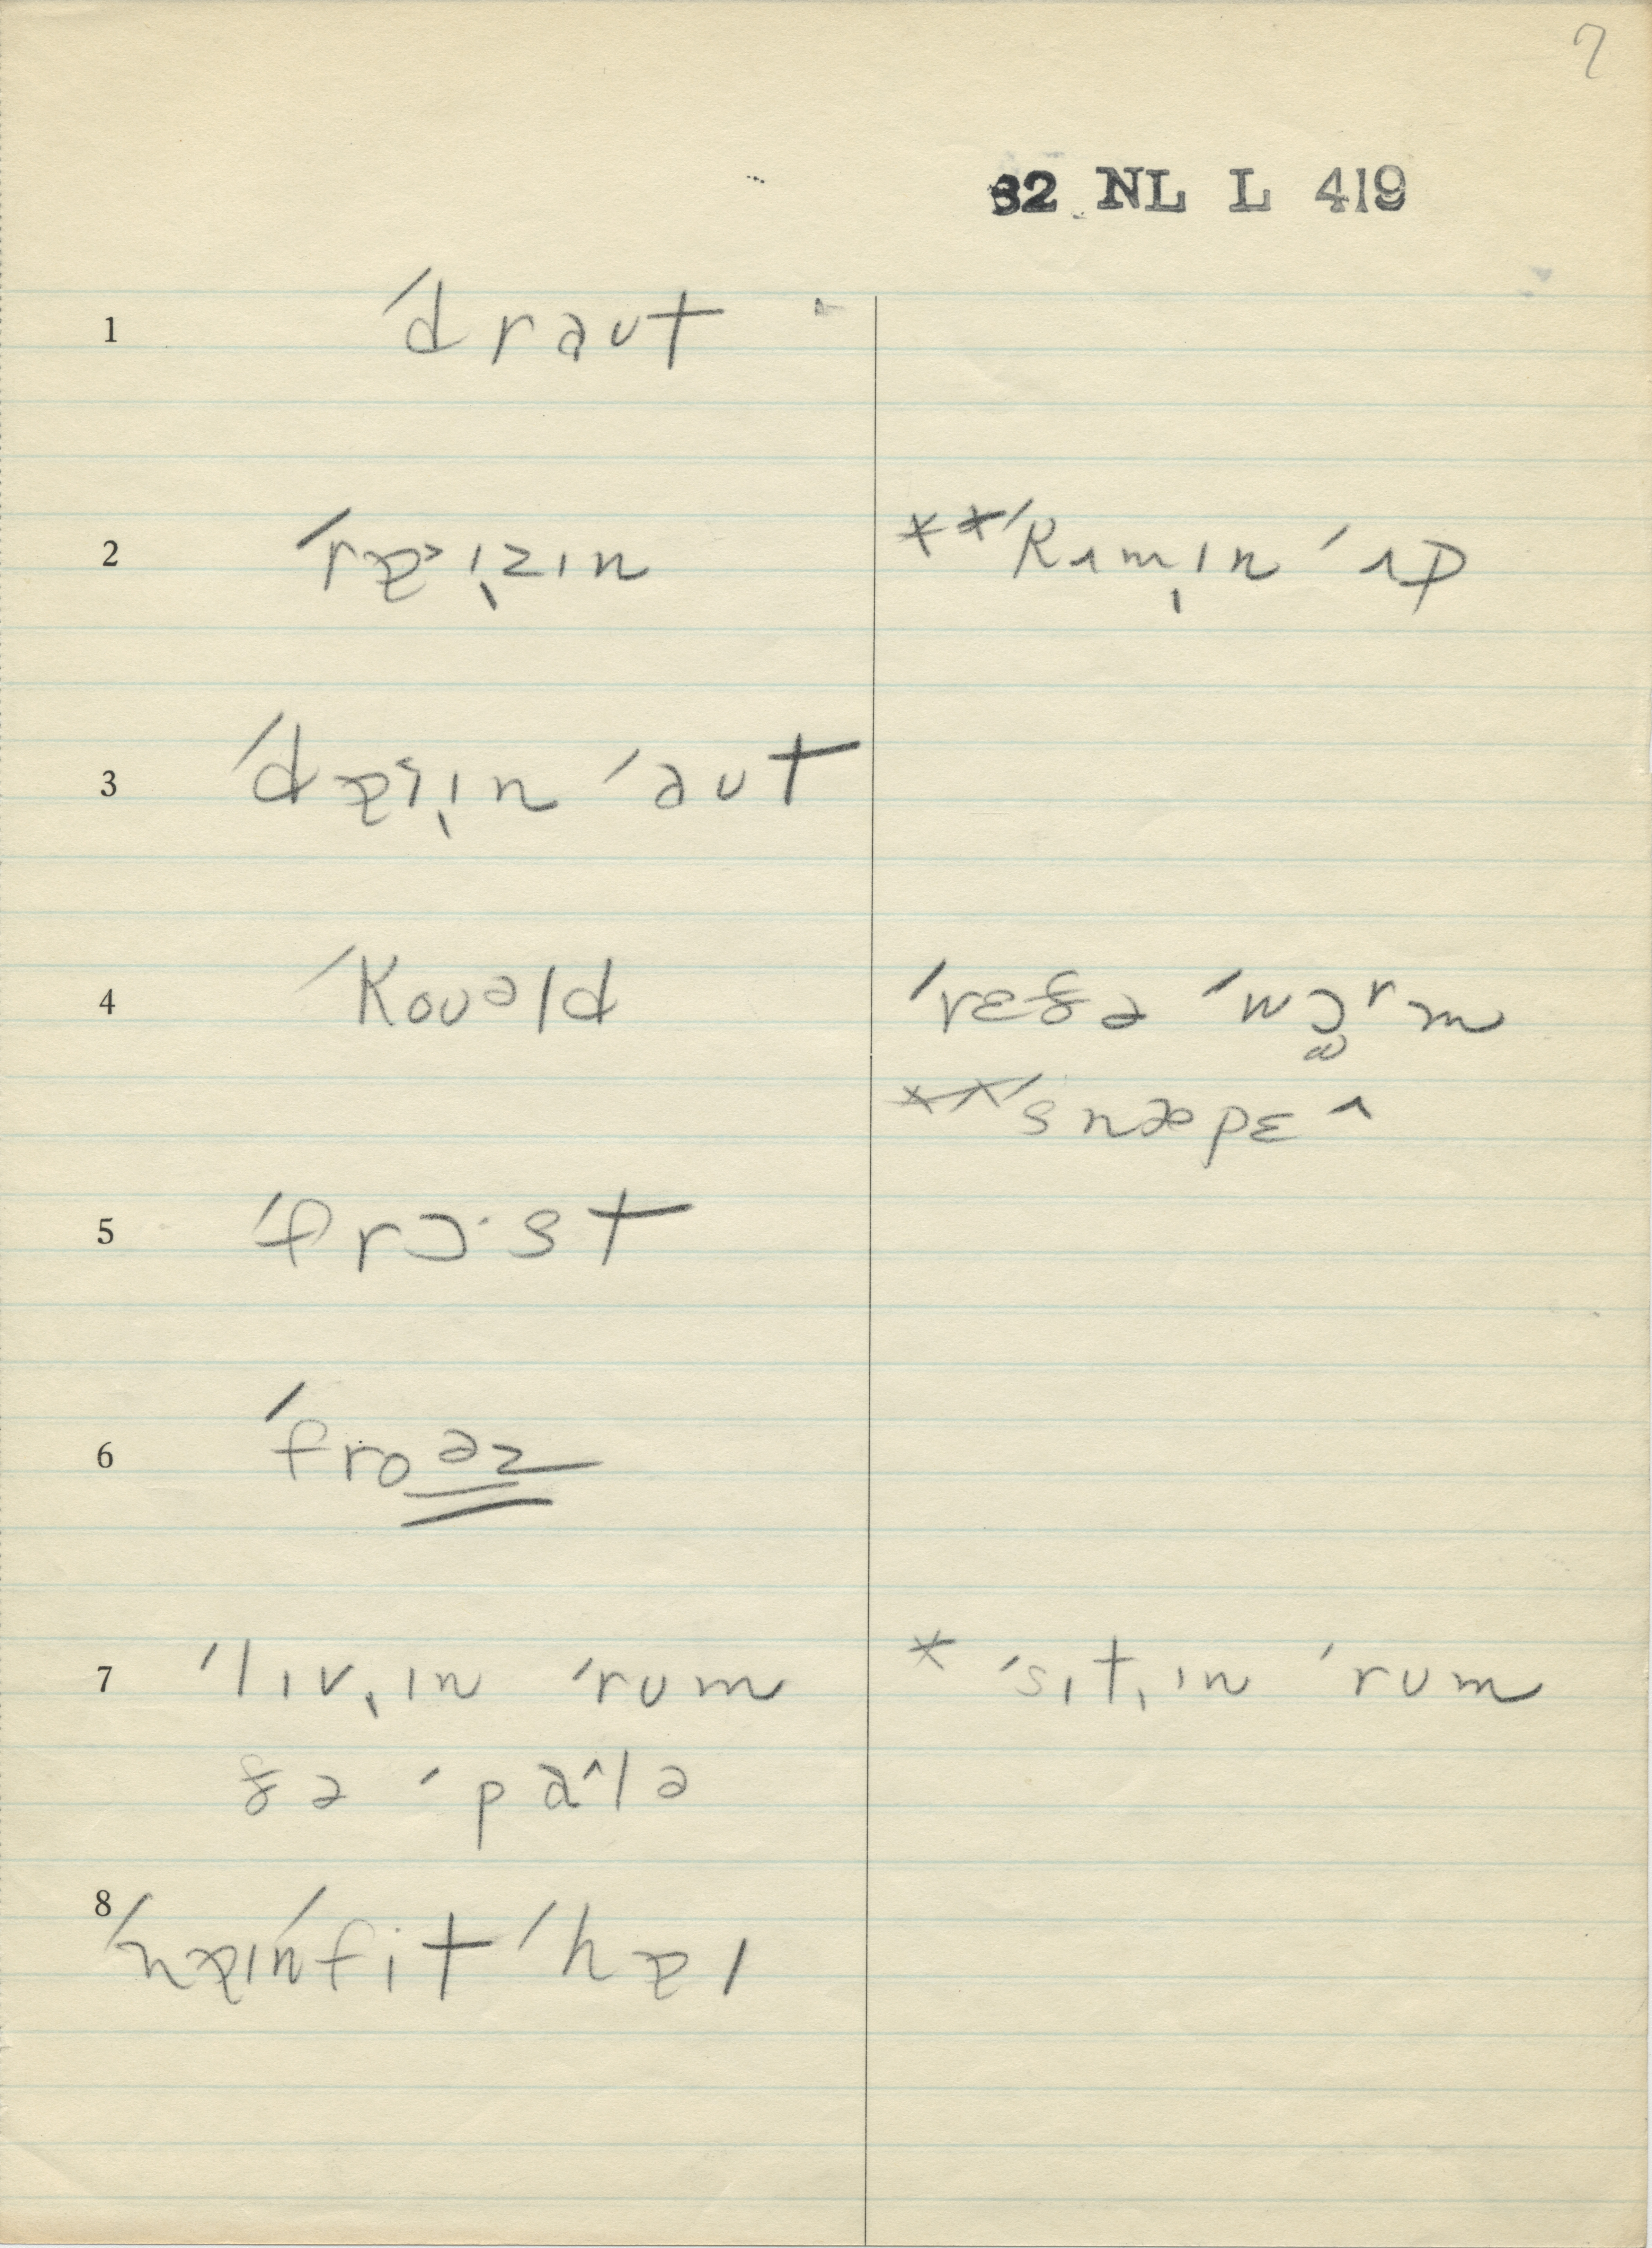 7
62 NL L 419
1 ˈdraʊt
2 ˈrɐ˃ɪ̨zɪn **ˈkʌmɪ̨n ˈʌp
3 ˈdɐ˃ɪ̨n ˈaʊt
4 ˈkoʊəld ˈrɛðə ˈwɔrm
**ˈsnæpɛ^
5 ˈfrɔ·st
6 ˈfroəz
7 ˈlɪv̨ɪn ˈrum *ˈsɪt̨ɪn ˈrum
ðə ˈpa^lə
8 ˈnɐɪnˈfit ˈhɐɪ